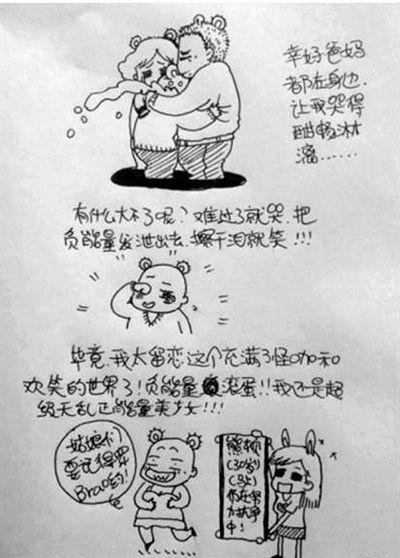 幸好爸妈
都在身边.
让我哭得
酣畅淋
漓……
有什么大不了呢?难过了就哭.把
负能量发泄出去.擦干泪就笑!!!
毕竟.我太留恋这个充满了怪咖和
欢笑的世界了!负能量滚蛋!!我还是超
级无敌正能量美少女!!!
姑娘们
要记得穿
Bra哟!
熊顿
(30岁)
仍在努
力抗争
中!